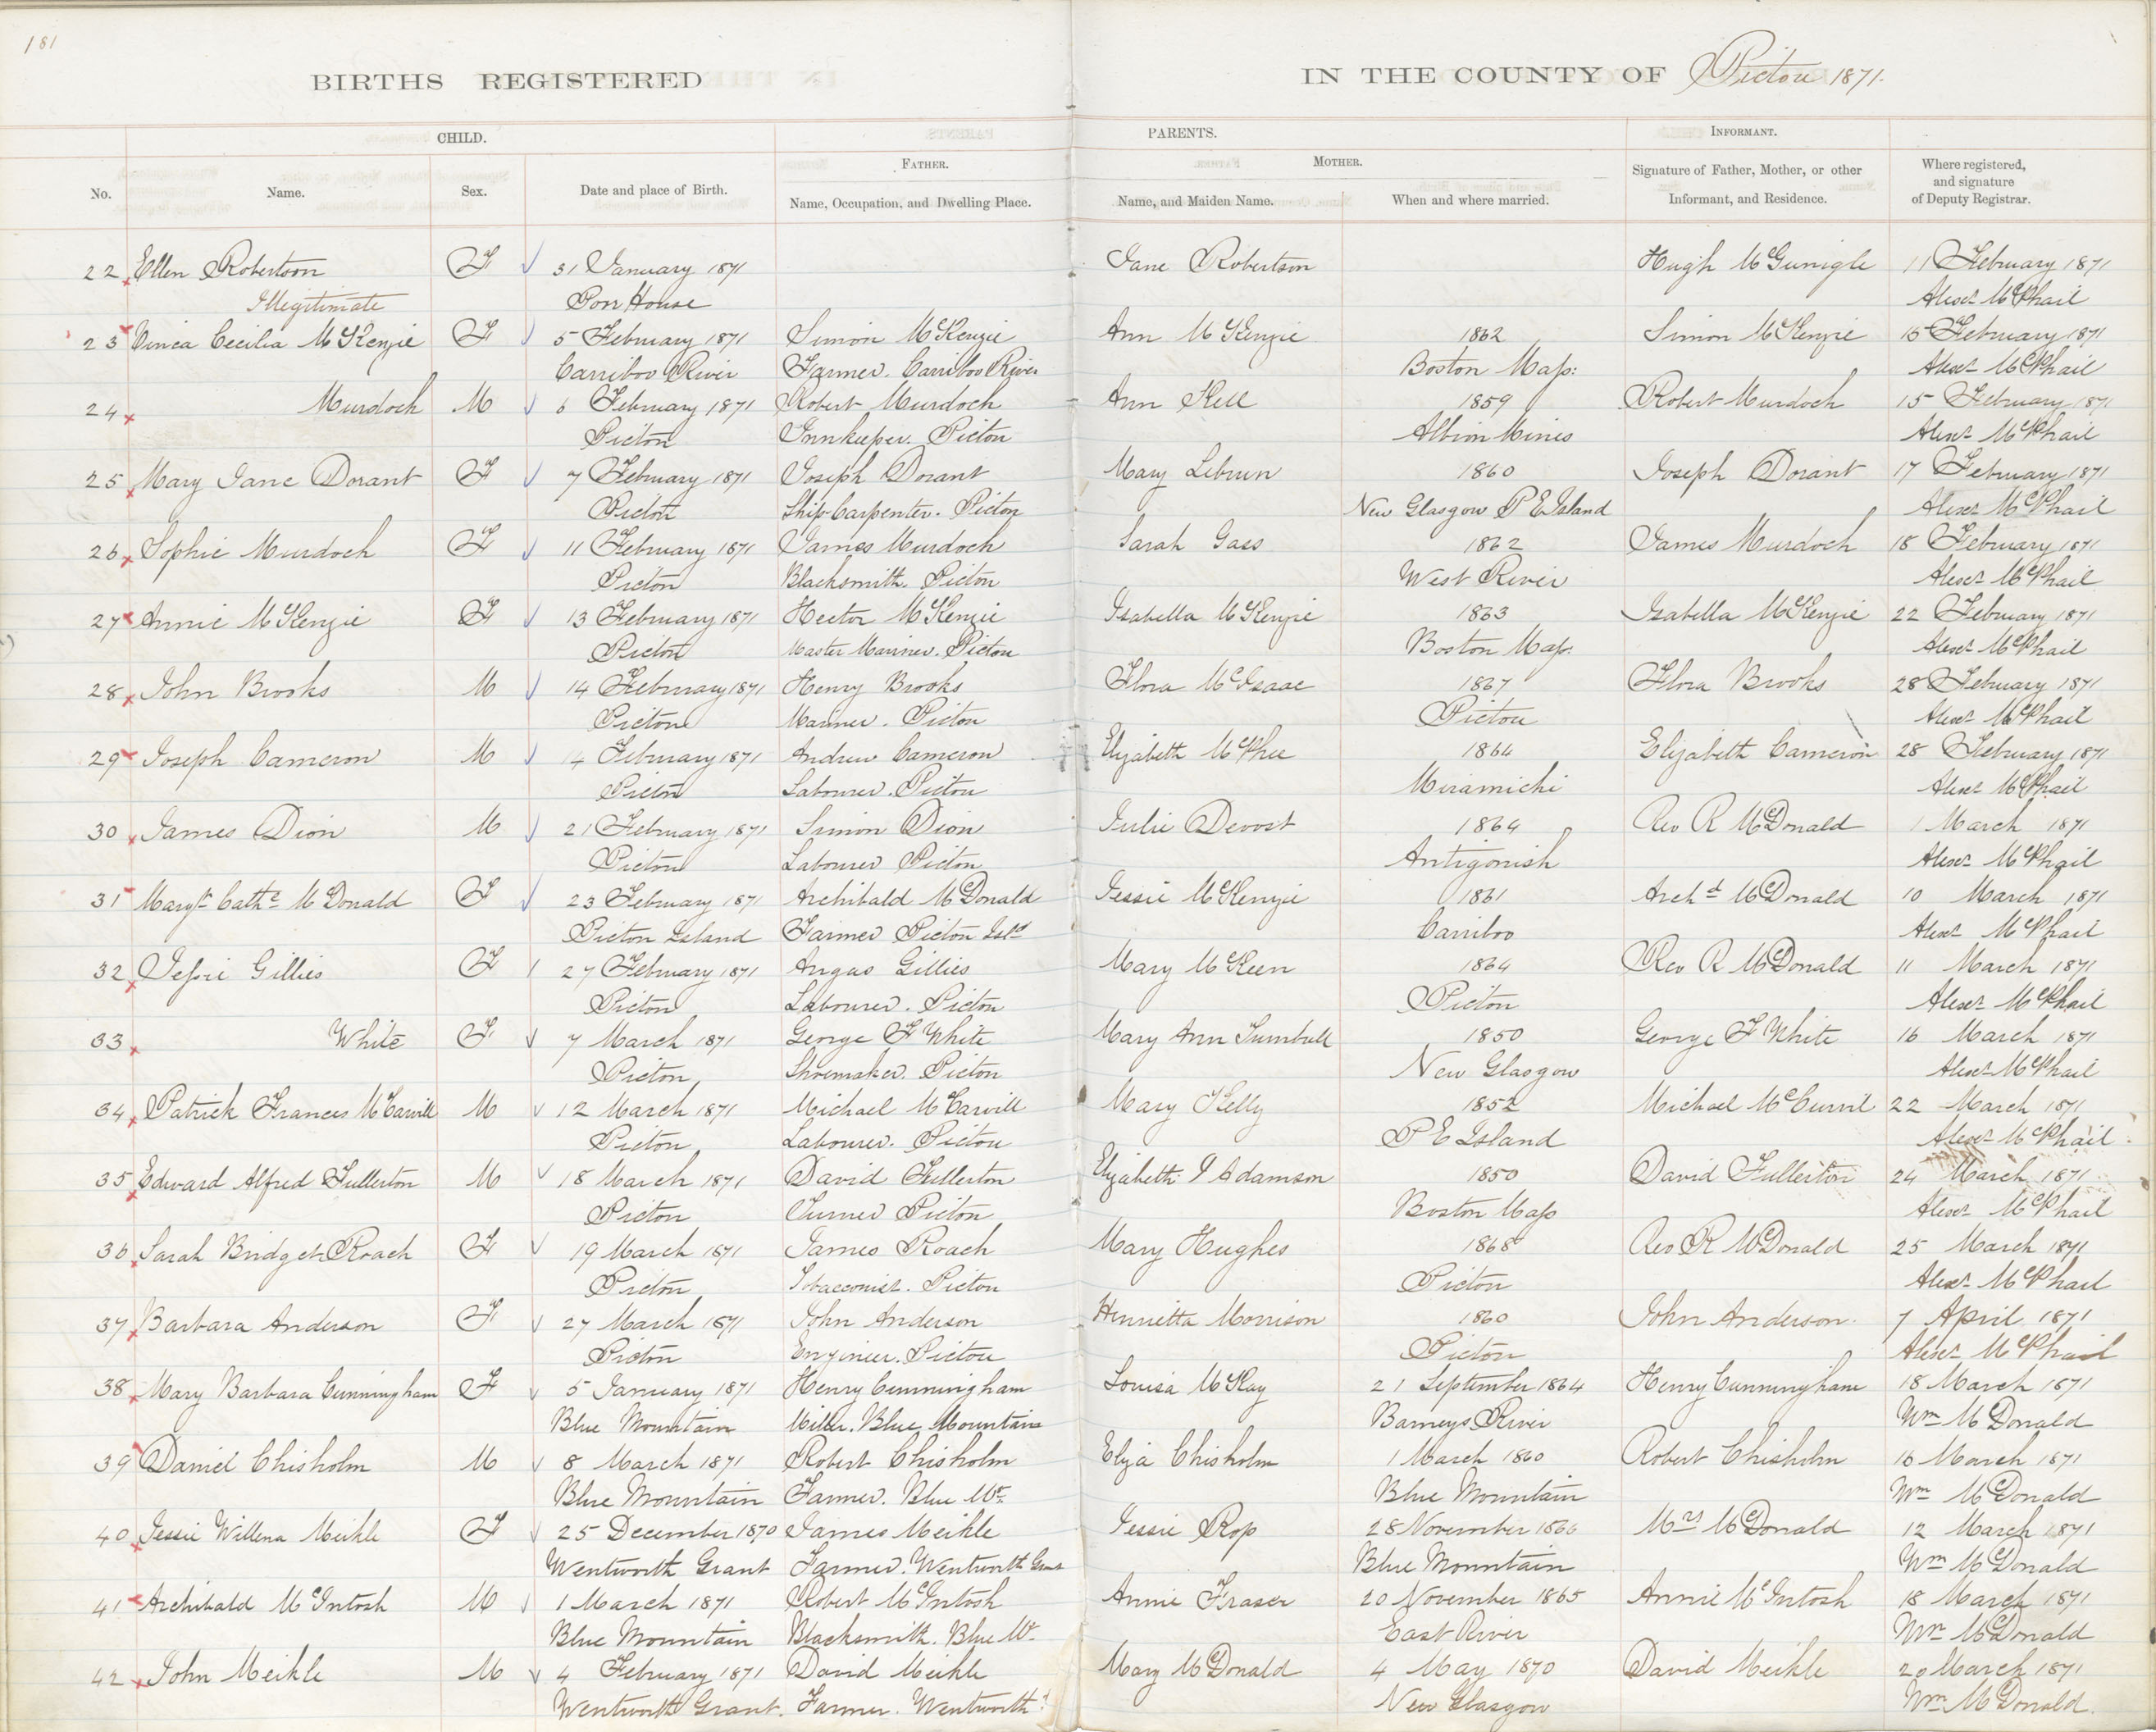 181
BIRTHS REGISTERED IN THE COUNTY OF Pictou 1871.
CHILD. PARENTS. INFORMANT.
FATHER. MOTHER.
No. Name. Sex. Date and place of Birth. Name, Occupation, and Dwelling Place. Name, and Maiden Name. When and where married. Signature of Father, Mother, or other Informant, and Residence. Where registered, and signature of Deputy Registrar.
22 Ellen Robertson F 31 January 1871 Jane Robertson Hugh McGunigle 11 February 1871
Illegitimate Poor House Alexr McPhail
23 Cecilia McKenzie F 5 February 1871 Simon McKenzie Ann McKenzie 1862 Simon McKenzie 15 February 1871
Carriboo River Farmer. Carriboo River Boston Mass: Alexr McPhail
24 Murdoch M 6 February 1871 Robert Murdoch Ann Kell 1859 Robert Murdoch 15 February 1871
Pictou Innkeeper. Pictou Albion Mines Alexr McPhail
25 Mary Jane Dorant F 7 February 1871 Joseph Dorant Mary Lebrun 1860 Joseph Dorant 17 February 1871
Pictou Ship-Carpenter. Pictou New Glasgow P E Island Alexr McPhail
26 Sophie Murdoch F 11 February 1871 James Murdoch Sarah Gass 1862 James Murdoch 18 February 1871
Pictou Blacksmith. Pictou West River Alexr McPhail
27 Annie McKenzie F 13 February 1871 Hector McKenzie Isabella McKenzie 1863 Isabella McKenzie 22 February 1871
Pictou Master Mariner. Pictou Boston Mass. Alexr McPhail
28 John Brooks M 14 February 1871 Henry Brooks Flora McIsaac 1867 Flora Brooks 28 February 1871
Pictou Mariner. Pictou Pictou Alexr McPhail
29 Joseph Cameron M 14 February 1871 Andrew Cameron Elizabeth McPhee 1864 Elizabeth Cameron 28 February 1871
Pictou Labourer. Pictou Miramichi Alexr McPhail
30 James Dion M 21 February 1871 Simon Dion Julie Devost 1864 Rev R McDonald 1 March 1871
Pictou Labourer Pictou Antigonish Alexr McPhail
31 Margt Cathe McDonald F 23 February 1871 Archibald McDonald Jessie McKenzie 1861 Archd McDonald 10 March 1871
Pictou Island Farmer Pictou Isld Carriboo Alexr McPhail
32 Jessie Gillies F 27 February 1871 Angus Gillies Mary McKeen 1864 Rev R McDonald 11 March 1871
Pictou Labourer. Pictou Pictou Alexr McPhail
33 White F 7 March 1871 George F White Mary Ann Turnbull 1850 George F White 16 March 1871
Pictou Shoemaker. Pictou New Glasgow Alexr McPhail
34 Patrick Frances McCarvill M 12 March 1871 Michael McCarvill Mary Kelly 1852 Michael McCurvil 22 March 1871
Pictou Labourer. Pictou P E Island Alexr McPhail
35 Edward Alfred Fullerton M 18 March 1871 David Fullerton Elizabeth J Adamson 1850 David Fullerton 24 March 1871
Pictou Turner Pictou Boston Mass Alexr McPhail
36 Sarah Bridget Roach F 19 March 1871 James Roach Mary Hughes 1868 Rev R McDonald 25 March 1871
Pictou Tobacconist. Pictou Pictou Alexr McPhail
37 Barbara Anderson F 27 March 1871 John Anderson Henrietta Morrison 1860 John Anderson. 7 April 1871
Pictou Engineer. Pictou Pictou Alexr McPhail
38 Mary Barbara Cunningham F 5 January 1871 Henry Cunningham Louisa McKay 21 September 1864 Henry Cunningham 18 March 1871
Blue Mountain Miller. Blue Mountain Barneys River Wm McDonald
39 Daniel Chisholm M 8 March 1871 Robert Chisholm Eliza Chisholm 1 March 1860 Robert Chisholm 16 March 1871
Blue Mountain Farmer. Blue Mt. Blue Mountain Wm McDonald
40 Jessie Willena Meikle F 25 December 1870 James Meikle Jessie Ross 28 November 1866 Mrs McDonald 12 March 1871
Wentworth Grant Farmer. Wentworth Grant Blue Mountain Wm McDonald
41 Archibald McIntosh M 1 March 1871 Robert McIntosh Annie Fraser 20 November 1865 Annie McIntosh 18 March 1871
Blue Mountain Blacksmith. Blue Mt. East River Wm McDonald
42 John Meikle M 4 February 1871 David Meikle Mary McDonald 4 May 1870 David Meikle 20 March 1871
Wentworth Grant. Farmer. Wentworth New Glasgow Wm McDonald.